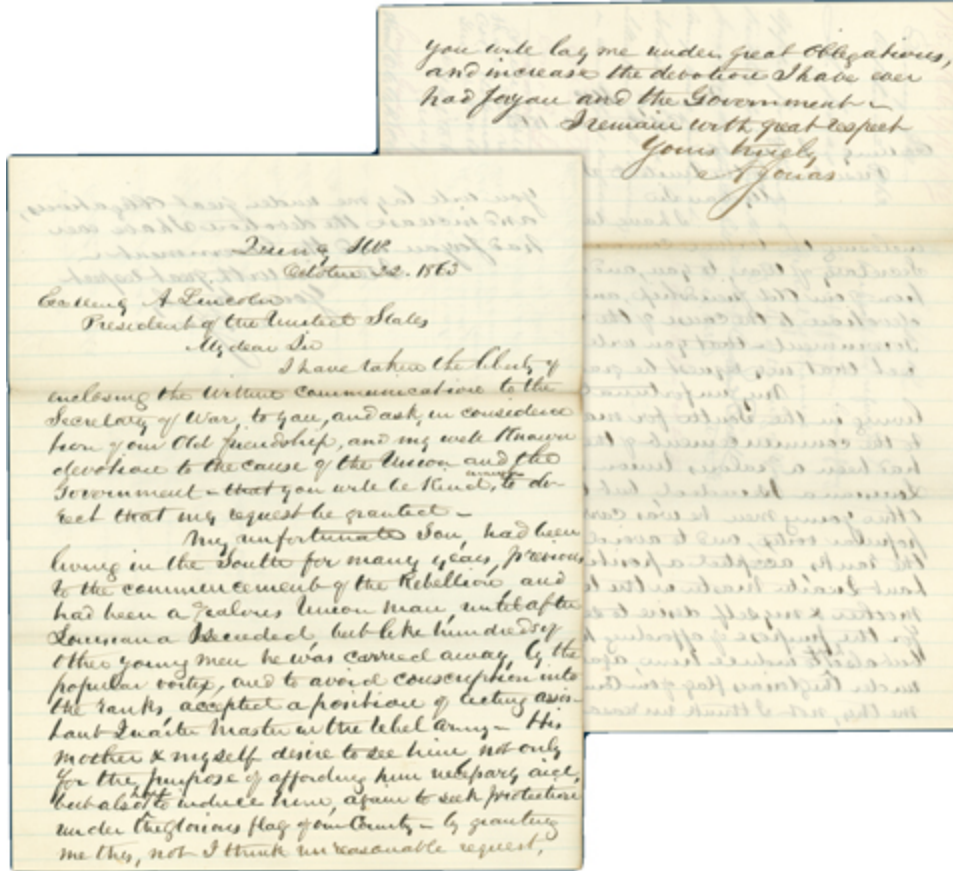 Quincy Ill.
October 22. 1863
Excellency A Lincoln
President of the United States
My dear Sir
I have taken the liberty of
inclosing the within communication to the
Secretary of War, to you, and ask, in considera
tion of our Old friendship, and my well Known
devotion to the cause of the Union and the
Government – that you will be Kind enough to di-
rect that my request be granted –
My unfortunate Son, had been
living in the South for many years, previous
to the commencement of the Rebellion and
had been a zealous Union man, until after
Louisiana Seceded, but like hundreds of
other young men he was carried away, by the
popular vortex, and to avoid conscription into
the ranks accepted a position of acting assis-
tant Quarter Master in the rebel army – His
mother & myself desire to see him not only
for the purpose of affording him necessary aid,
but also to induce him, again to seek protection
under the glorious flag of our Country – by granting
me this, not I think unreasonable request,
you will lay me under great obligations,
and increase the devotion I have ever
had for you and the Government –
I remain with great respect
Yours truly,
A Jonas